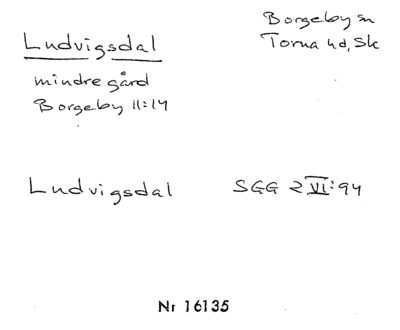 Ludvigsdal
Borgeby sn
Torna hd, Sk
mindre gård
Borgeby 11:14
Ludvigsdal
SGG 2 VI:94
Nr 16135